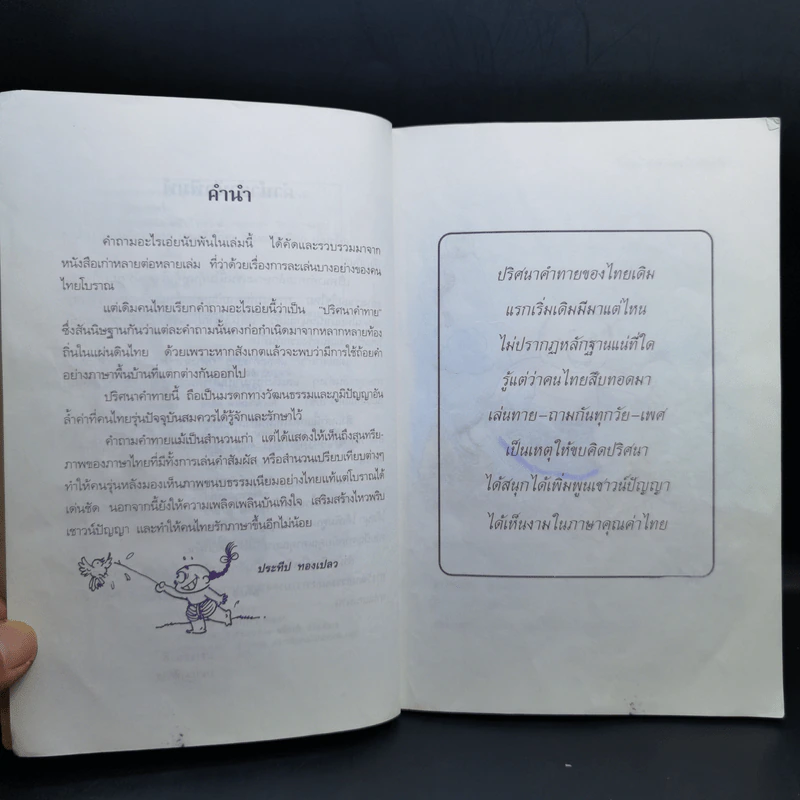 คำนำ
คำถามอะไรเอ่ยนับพันในเล่มนี้ ได้คัดและรวบรวมมาจาก
หนังสือเก่าหลายต่อหลายเล่ม ที่ว่าด้วยเรื่องการละเล่นบางอย่างของคน
ไทยโบราณ
แต่เดิมคนไทยเรียกคำถามอะไรเอ่ยนี้ว่าเป็น "ปริศนาคำทาย"
ซึ่งสันนิษฐานกันว่าแต่ละคำถามนั้นคงก่อกำเนิดมาจากหลากหลายท้อง
ถิ่นในแผ่นดินไทย ด้วยเพราะหากสังเกตแล้วจะพบว่ามีการใช้ถ้อยคำ
อย่างภาษาพื้นบ้านที่แตกต่างกันออกไป
ปริศนาคำทายนี้ ถือเป็นมรดกทางวัฒนธรรมและภูมิปัญญาอัน
ล้ำค่าที่คนไทยรุ่นปัจจุบันสมควรได้รู้จักและรักษาไว้
คำถามคำทายแม้เป็นสำนวนเก่า แต่ได้แสดงให้เห็นถึงสุนทรีย-
ภาพของภาษาไทยที่มีทั้งการเล่นคำสัมผัส หรือสำนวนเปรียบเทียบต่างๆ
ทำให้คนรุ่นหลังมองเห็นภาพขนบธรรมเนียมอย่างไทยแท้แต่โบราณได้
เด่นชัด นอกจากนี้ยังให้ความเพลิดเพลินบันเทิงใจ เสริมสร้างไหวพริบ
เชาวน์ปัญญา และทำให้คนไทยรักภาษาขึ้นอีกไม่น้อย
ประทีป ทองเปลว
ปริศนาคำทายของไทยเดิม
แรกเริ่มเดิมมีมาแต่ไหน
ไม่ปรากฏหลักฐานแน่ที่ใด
รู้แต่ว่าคนไทยสืบทอดมา
เล่นทาย-ถามกันทุกวัย-เพศ
เป็นเหตุให้ขบคิดปริศนา
ได้สนุกได้เพิ่มพูนเชาวน์ปัญญา
ได้เห็นงามในภาษาคุณค่าไทย